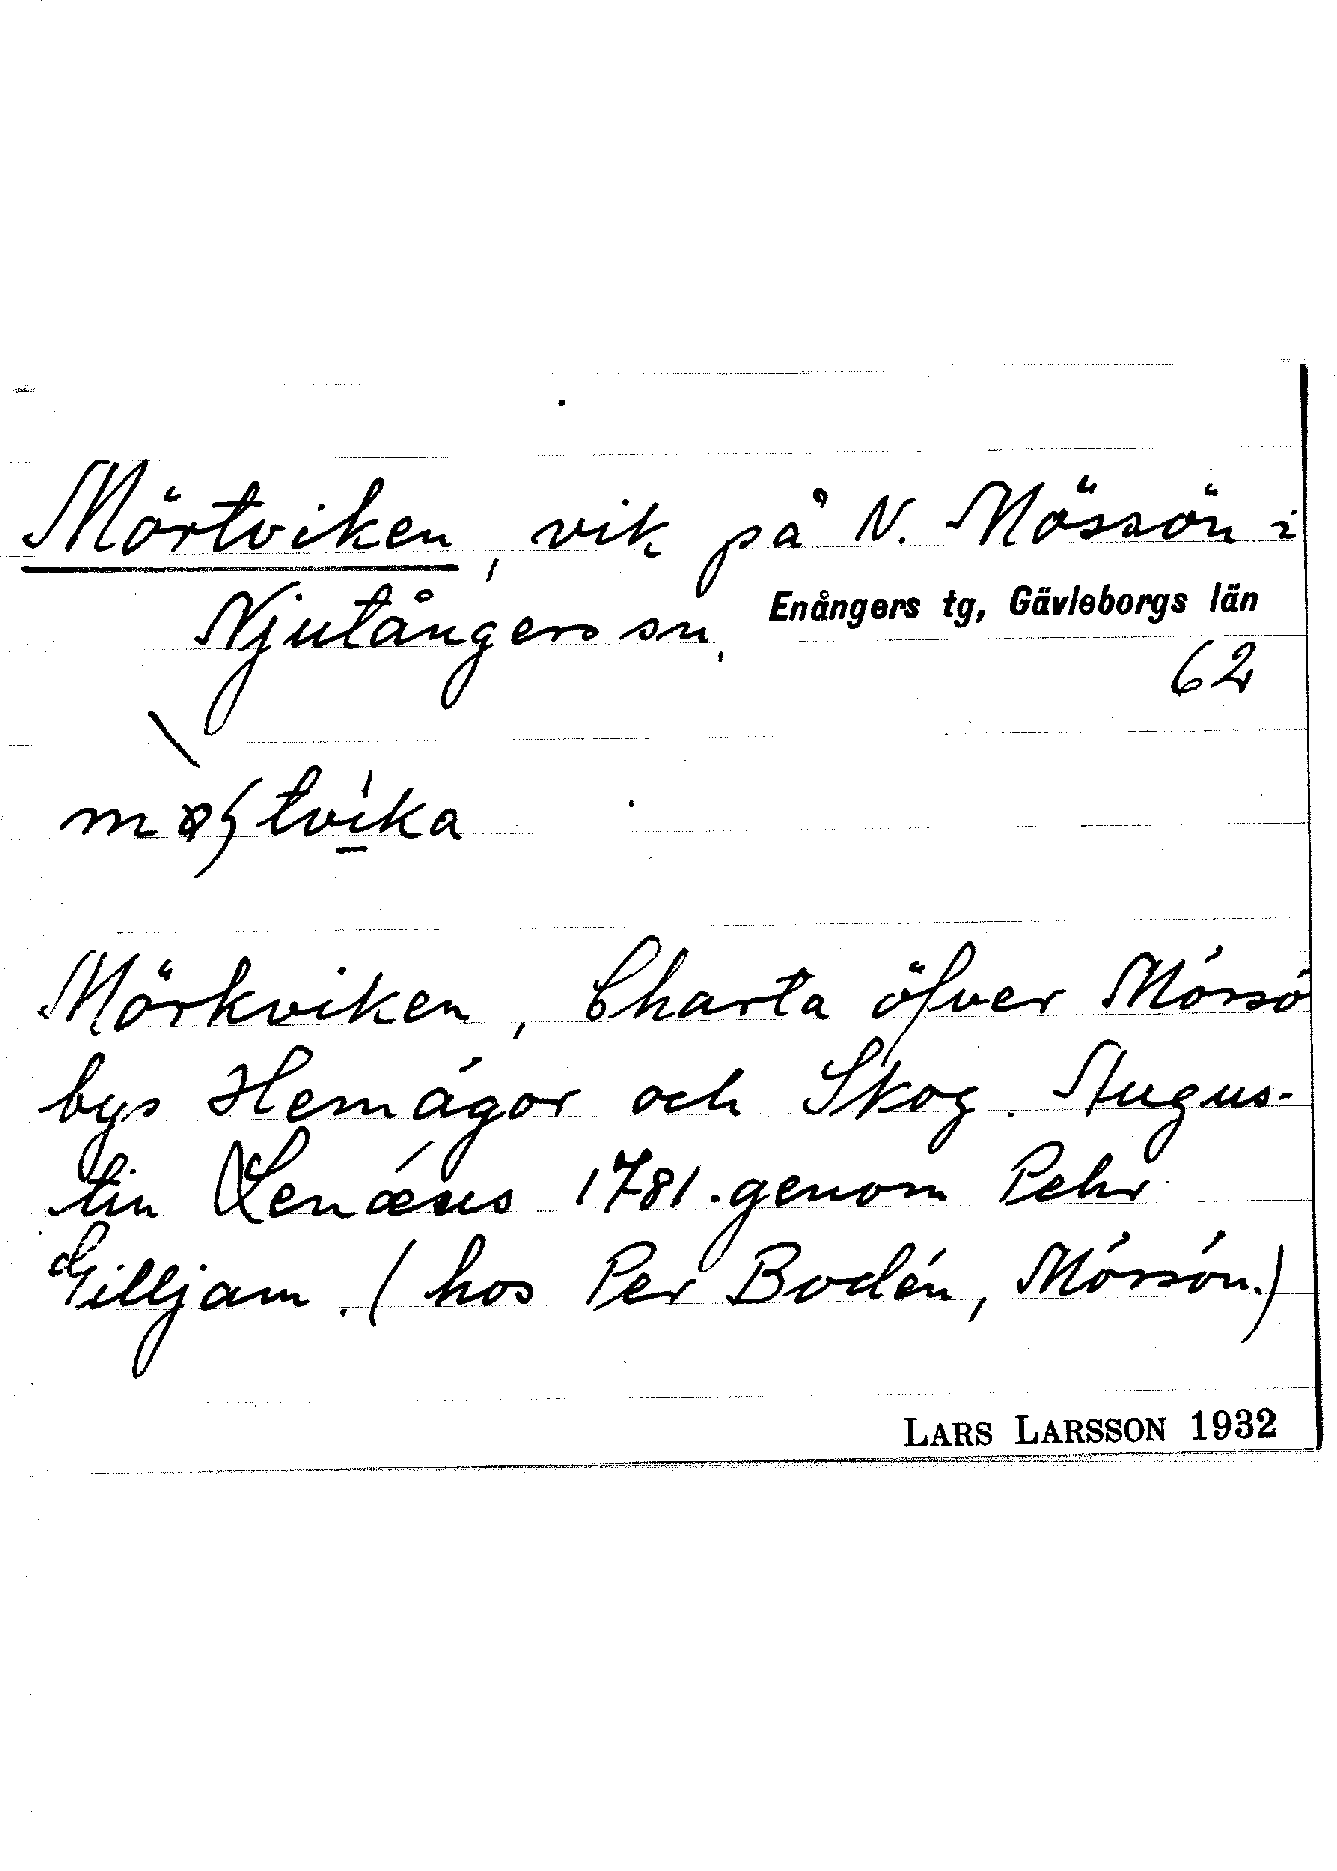 Mörtviken, vik på N. Mössön i
Njutångers sn.
Enångers tg, Gävleborgs län
62
Mörkviken, Charta öfver Mórsó
bys Hemágor och Skog. Augus-
tin Lenæus 1781. genom Pehr
Gilljam. (hos Per Bodén, Mórsón.)
LARS LARSSON 1932